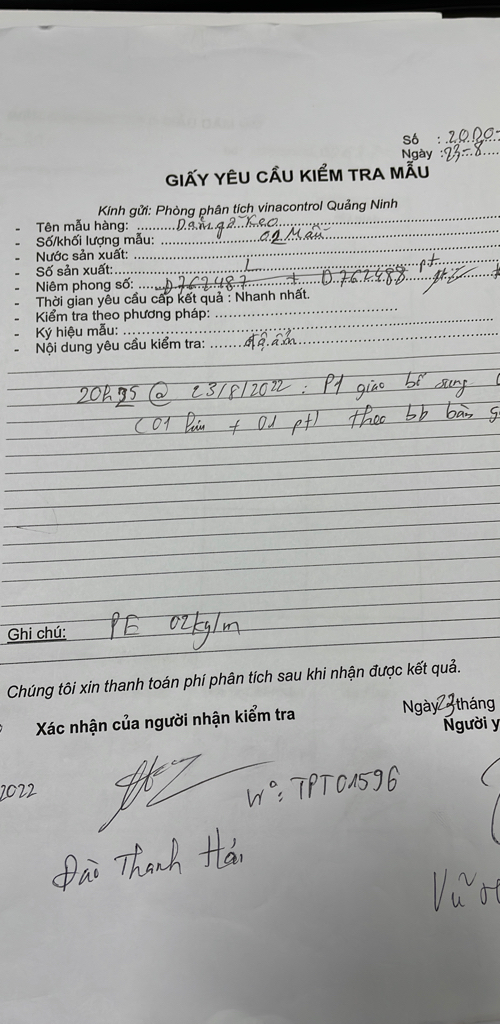 Số : 2000-
Ngày : 23-8
GIẤY YÊU CẦU KIỂM TRA MẪU
Kính gửi: Phòng phân tích vinacontrol Quảng Ninh
- Tên mẫu hàng: Dăm gỗ Keo
- Số/khối lượng mẫu: 02 Mẫu
- Nước sản xuất:
- Số sản xuất:
- Niêm phong số: D762487 + D.762488 pt
- Thời gian yêu cầu cấp kết quả : Nhanh nhất.
- Kiểm tra theo phương pháp:
- Ký hiệu mẫu:
- Nội dung yêu cầu kiểm tra: Độ ẩm
20h35 @ 23/8/2022 : P1 giao bổ sung
(01 lưu + 01 pt) theo bb bàn
Ghi chú: PE 02kg/m
Chúng tôi xin thanh toán phí phân tích sau khi nhận được kết quả.
Ngày 23 tháng
Xác nhận của người nhận kiểm tra
Người y
2022
Nº: TPT01596
Đào Thanh Hải
Vũ